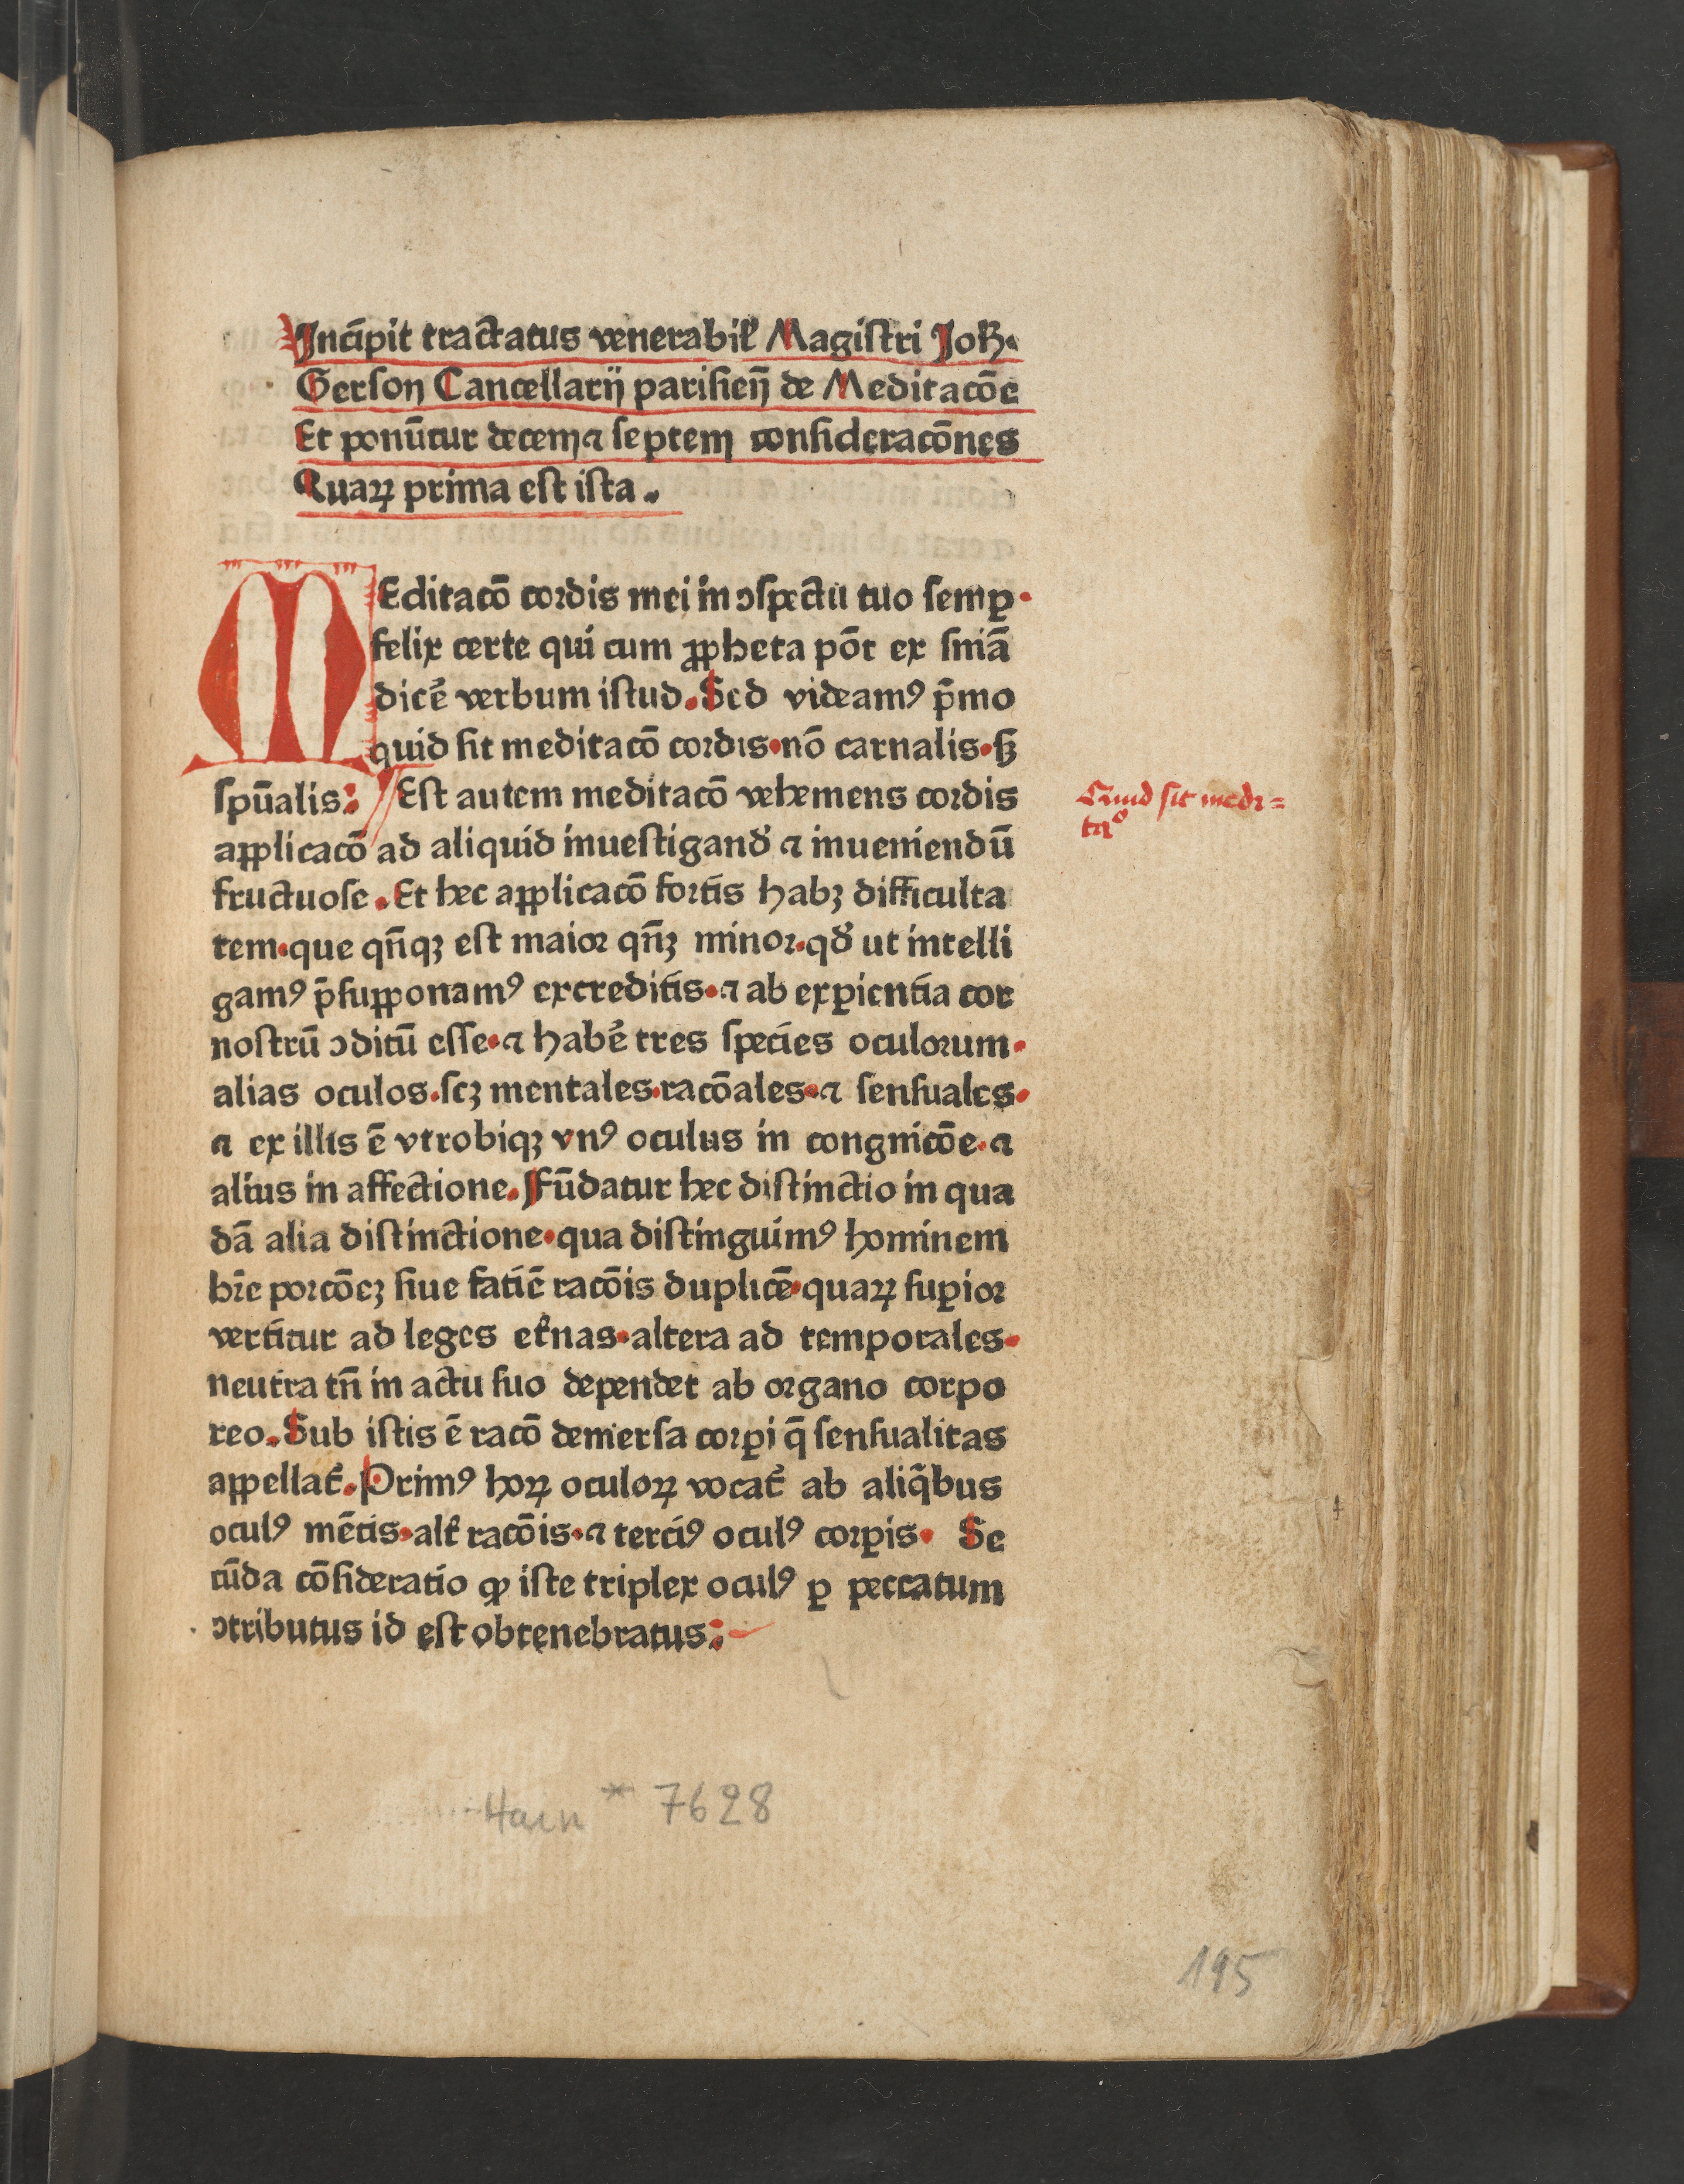 Incipit tractatus venerabil̕ Magistri Joħ.
Gerson Cancellarij parisieñ de Meditacōe
Et ponūtur decem ⁊ septem consideracōnes
Quaꝝ prima est ista.
MEditacō cordis mei in ꝯspectu tuo semꝑ.
felix certe qui cum ꝓpheta pōt ex sniā
dicē̕ verbum istud. Sed videamꝰ p̄mo
quid sit meditacō cordis. nō carnalis. sꝫ
spūalis: Est autem meditacō vehemens cordis
applicacō ad aliquid inuestigand̕ ⁊ inueniendū
fructuose. Et hec applicacō fortis habꝫ difficulta
tem. que qn̄qꝫ est maior qn̄ꝫ minor. qd̕ ut intelli
gamꝰ p̄supponamꝰ excreditis. ⁊ ab exꝑientia cor
nostrū ꝯditū esse. ⁊ habē̕ tres species oculorum.
alias oculos. scꝫ mentales. racōales. ⁊ sensuales.
⁊ ex illis ē vtrobiqꝫ vnꝰ oculus in congnicōe. ⁊
alius in affectione. Fūdatur hec distinctio in qua
dā alia distinctione. qua distinguimꝰ hominem
hr̄e porcōeꝫ siue fatiē racōis duplicē. quaꝝ suꝑior
vertitur ad leges et̕nas. altera ad temporales.
neutra tn̄ in actu suo dependet ab organo corpo
reo. Sub istis ē racō demersa corꝑi q̄ sensualitas
appellat̕. Primꝰ hoꝝ oculoꝝ vocat̕ ab aliq̄bus
oculꝰ mētis. alt̕ racōis. ⁊ terciꝰ oculꝰ corꝑis. Se
cūda cōsideratio ꝙ iste triplex oculꝰ ꝑ peccatum
ꝯtributus id est obtenebratus:
Quid sit medi=
taᵒ
Hain * 7628
195